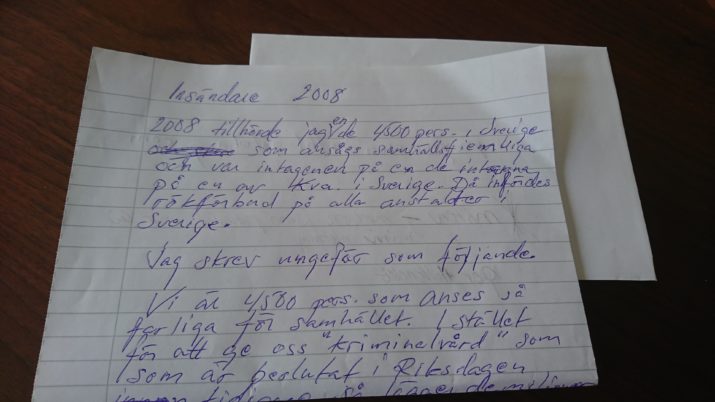 Insändare 2008
2008 tillhörde jag en de 4500 pers. i Sverige
som ansågs samhällsfientliga
och var intagenen på en de
på en av Kva. i Sverige. Då infördes
rökförbud på alla anstalter i
Sverige.
Jag skrev ungefär som följande.
Vi är 4500 pers. som anses så
farliga för samhället. I stället
för att ge oss "kriminalvård" som
som är beslutat i Riksdagen